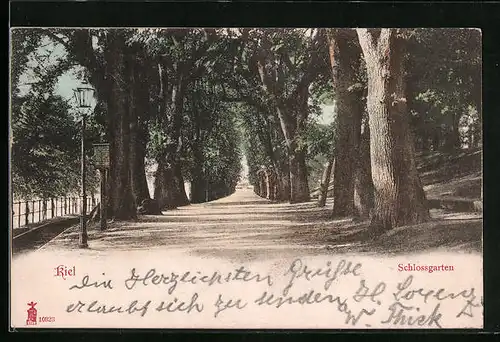 Kiel
Schlossgarten
Die Herzlichsten Grüße
erlaubt sich zu senden H. Lorenz
W. Thick
10823